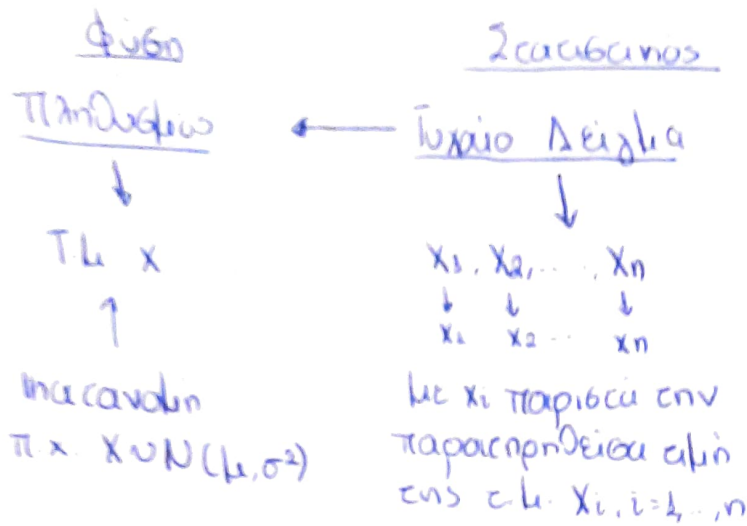 Φύση
Πληθυσμού
Τ.μ X
κατανομή
π.χ. X~N(μ,σ²)
Στατιστικός
Τυχαίο Δείγμα
X1, X2, ..., Xn
x1 x2 ... xn
με xi παριστά την
παρατηρηθείσα τιμή
της τ.μ. Xi, i=1,..,n